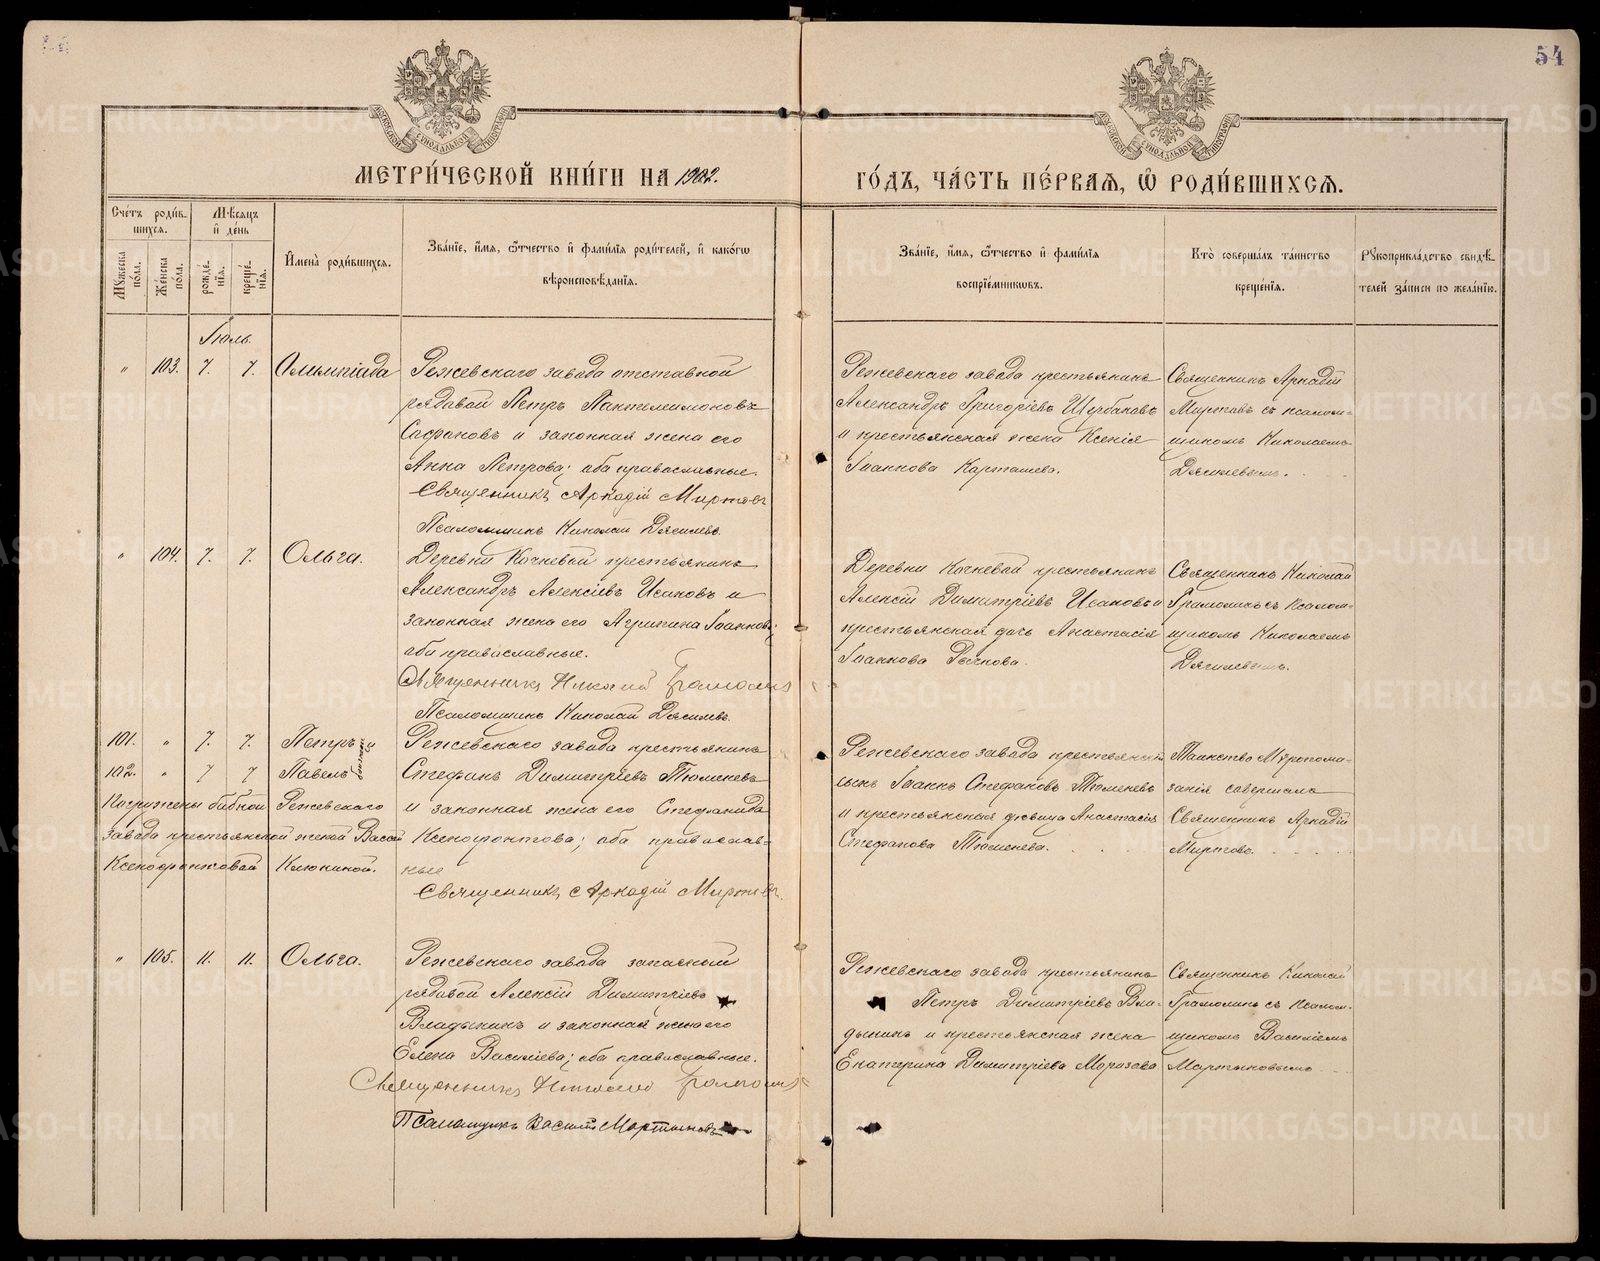 54
МОСКОВСКОЙ СѴНОДАЛЬНОЙ ТИПОГРАФІИ
МОСКОВСКОЙ СѴНОДАЛЬНОЙ ТИПОГРАФІИ
МЕТРИ́ЧЕСКОЙ КНИ́ГИ НА 1902.
ГО́ДЪ, ЧА́СТЬ ПЕ́РВАѦ, Ѡ҆ РОДИ́ВШИХСѦ.
Сче́тъ роди́вшихсѧ.
Мѣ́сѧцъ и҆ де́нь
Мꙋ́жеска по́ла.
Же́нска по́ла.
рожде́нїѧ.
креще́нїѧ.
И҆мена̀ роди́вшихсѧ.
Зва́нїе, и҆́мѧ, ѻ҆́тчество и҆ фами́лїѧ роди́телей, и҆ како́гѡ
вѣроисповѣ́данїѧ.
Зва́нїе, и҆́мѧ, ѻ҆́тчество и҆ фами́лїѧ
воспрїе́мниковъ.
Кто̀ соверша́лъ та́инство
креще́нїѧ.
Рꙋкоприкла́дство свидѣ́телей за́писи по жела́нїю.
Іюль.
" 103. 7. 7. Олимпіада
Режевскаго завода отставной
рядовой Петръ Пантелеимоновъ
Сафоновъ и законная жена его
Анна Петрова; оба православные.
Священникъ Аркадій Миртовъ
Псаломщикъ Николай Дягилевъ.
Режевскаго завода крестьянинъ
Александръ Григоріевъ Щербаковъ
и крестьянская жена Ксенія
Іоаннова Карташева.
Священникъ Аркадій
Миртовъ съ псалом-
щикомъ Николаемъ
Дягилевымъ.
" 104. 7. 7. Ольга.
Деревни Кочневой крестьянинъ
Александръ Алексіевъ Исаковъ и
законная жена его Агрипина Іоаннова;
оба православные.
Священникъ Николай Грамолинъ
Псаломщикъ Николай Дягилевъ.
Деревни Кочневой крестьянинъ
Алексій Димитріевъ Исаковъ и
крестьянская дочь Анастасія
Іоаннова
Священникъ Николай
Грамолинъ съ псалом-
щикомъ Николаемъ
Дягилевымъ.
101. " 7. 7. Петръ
102. " 7 7 Павелъ
близнецы
Погружены бабкой Режевскаго
завода крестьянской женой Васой
Ксенофонтовой Клюкиной.
Режевскаго завода крестьянинъ
Стефанъ Димитріевъ Тюменевъ
и законная жена его Стефанида
Ксенофонтова; оба православ-
ные
Священникъ Аркадій Миртовъ.
Режевскаго завода крестьянскій
сынъ Іоаннъ Стефановъ Тюменевъ
и крестьянская дѣвица Анастасія
Стефанова Тюменева.
Таинство Мѵропома-
занія совершалъ
Священникъ Аркадій
Миртовъ.
" 105. 11. 11. Ольга.
Режевскаго завода запасной
рядовой Алексій Димитріевъ
Владыкинъ и законная жена его
Елена Василіева; оба православные.
Священникъ Николай Грамолинъ
Псаломщикъ Василій Мартыновъ
Режевскаго завода крестьянинъ
Петръ Димитріевъ Вла-
дыкинъ и крестьянская жена
Екатерина Димитріева Морозова
Священникъ Николай
Грамолинъ съ псалом-
щикомъ Василіемъ
Мартыновымъ
METRIKI.GASO-URAL.RU